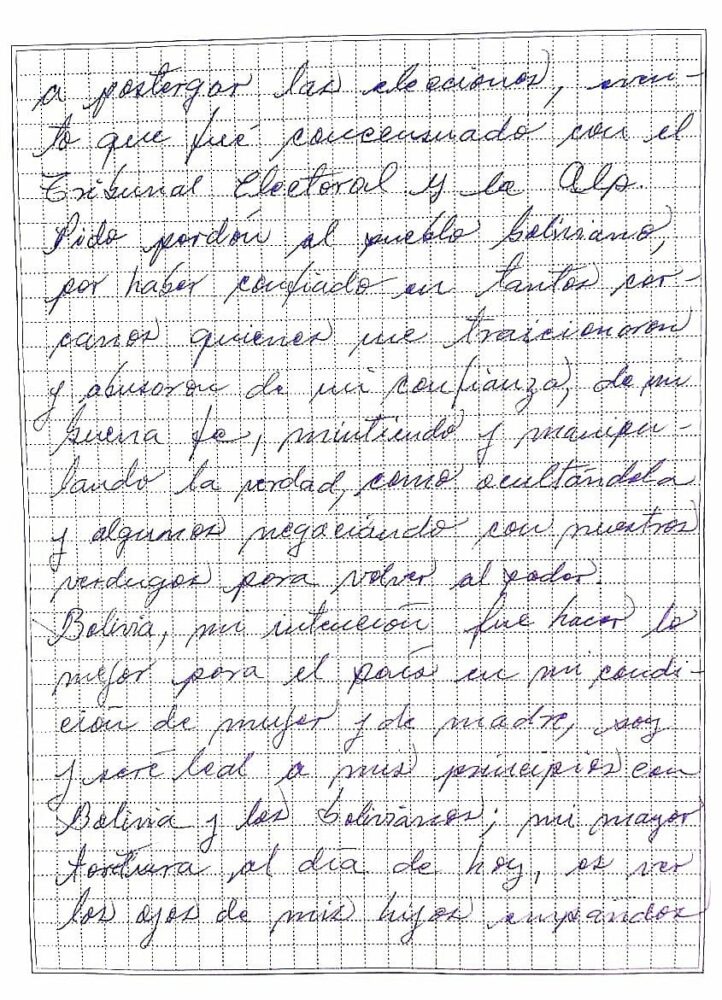 a postergar las elecciones, even-
to que fué concensuado con el
Tribunal Electoral y la Alp.
Pido perdón al pueblo boliviano,
por haber confiado en tantos cer-
canos quienes me traicionaron
y abusaron de mi confianza, de mi
buena fe, mintiendo y manipu-
lando la verdad, como ocultándola
y algunos negociando con nuestros
verdugos para volver al poder.
Bolivia, mi intención fue hacer lo
mejor para el país en mi condi-
ción de mujer y de madre, soy
y seré leal a mis principios con
Bolivia y los bolivianos; mi mayor
tortura al día de hoy, es ver
los ojos de mis hijos